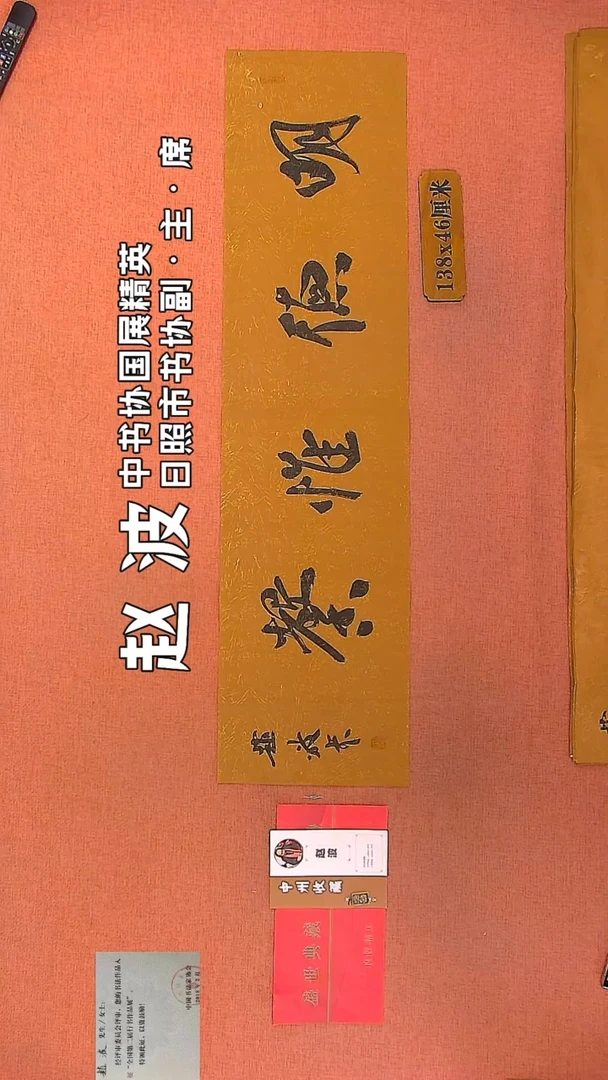 赵波
中书协国展精英
日照市书协副·主·席
明德惟馨
趙波书
138x46厘米
赵波
中州收藏
盛世典藏
趙波 先生/女士:
经评审委员会评审,您的书法作品入
展“全国第二届行书作品展”,
特颁此证,以资鼓励!
中国书法家协会